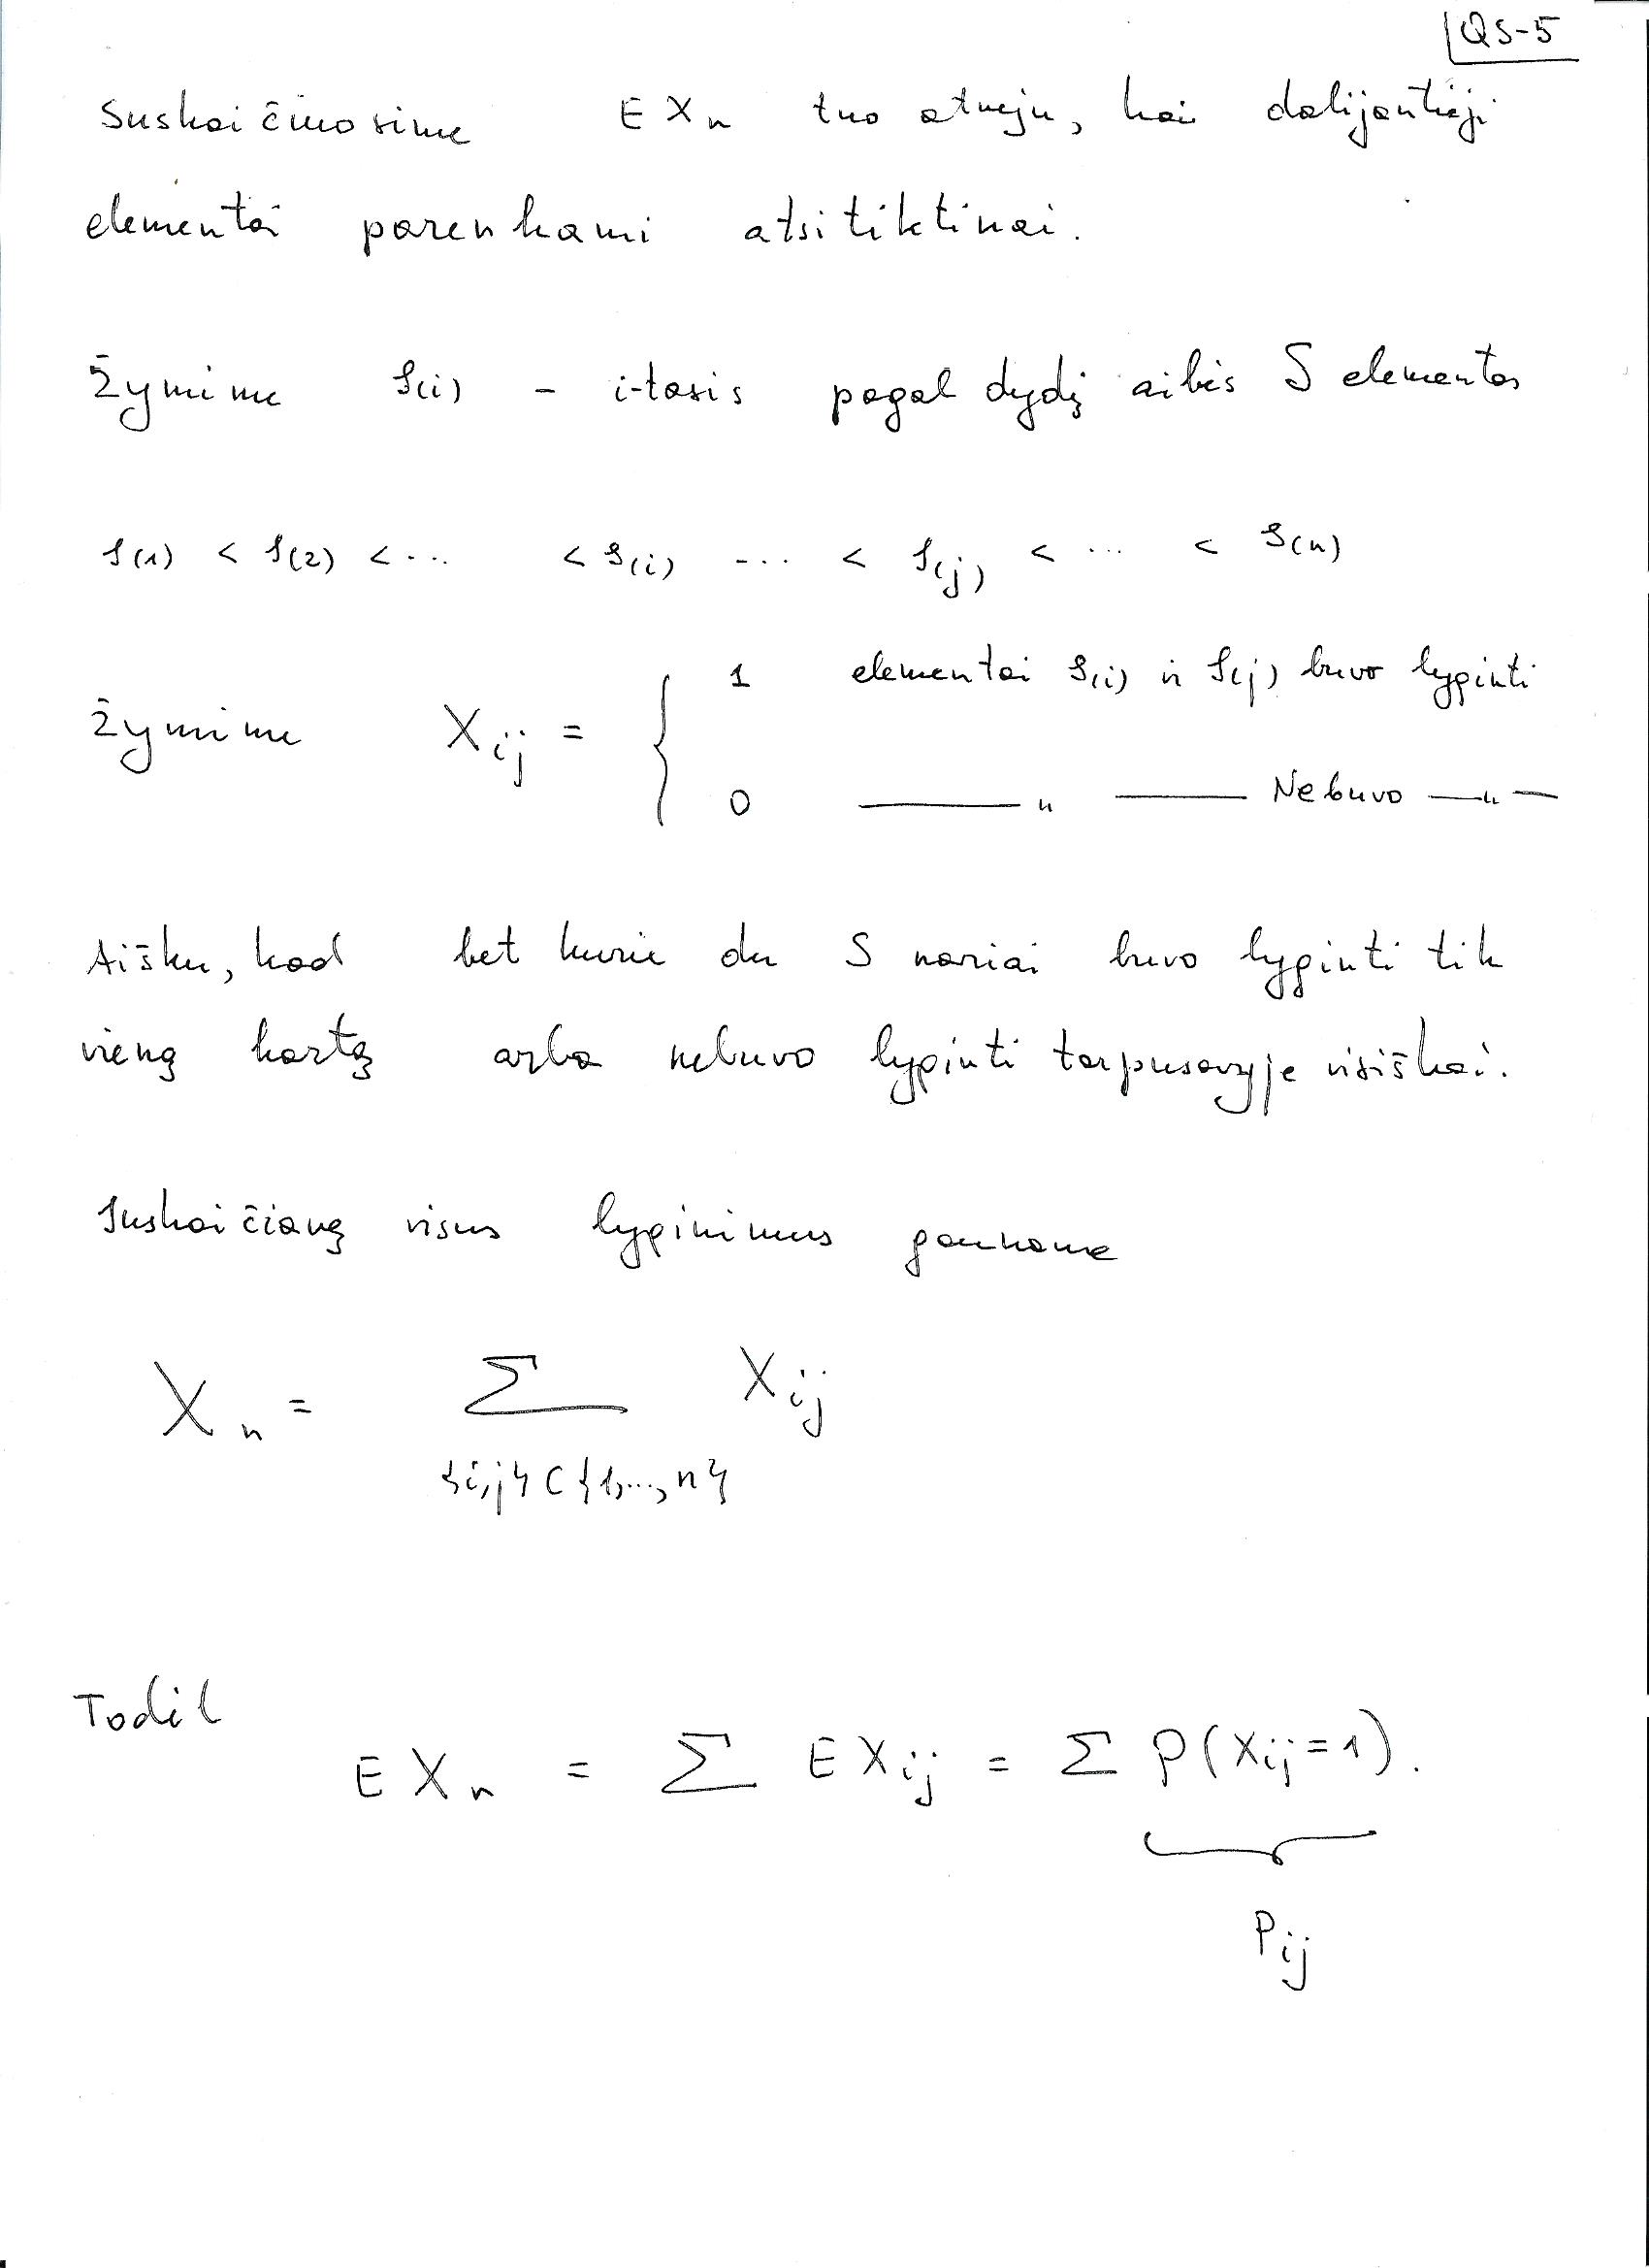 QS-5
Suskaičiuosime EXₙ tuo atveju, kai dalijantieji
elementai parenkami atsitiktinai.
Žymime S(i) - i-tasis pagal dydį aibės S elementas
S(1) < S(2) < ... < S(i) ... < S(j) < ... < S(n)
1 elementai S(i) ir S(j) buvo lyginti
Žymime Xᵢⱼ = {
0 —— " —— Nebuvo — " —
Aišku, kad bet kurie du S nariai buvo lyginti tik
vieną kartą arba nebuvo lyginti tarpusavyje visiškai.
Suskaičiavę visus lyginimus gauname
Xₙ = Σ Xᵢⱼ
{i,j} ⊂ {1,...,n}
Todėl
EXₙ = Σ EXᵢⱼ = Σ P(Xᵢⱼ=1).
Pᵢⱼ